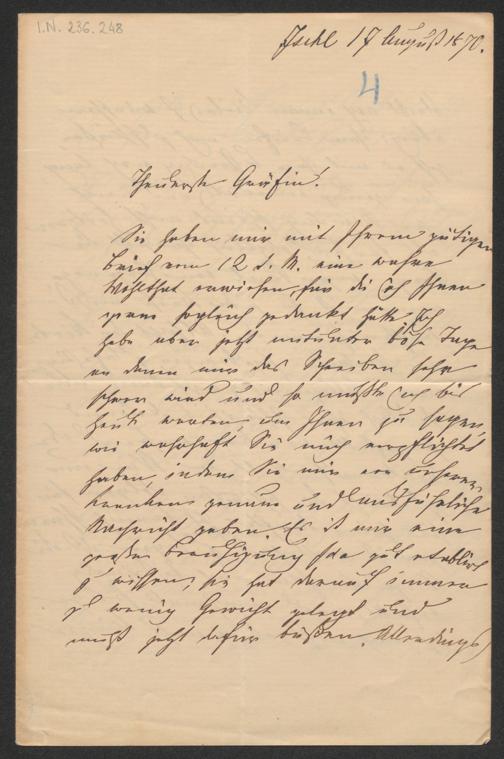 I.N. 236.248
Ischl 17 August 1870.
4
Theuerste Gräfin!
Sie haben mir mit Ihrem gütigen
Brief vom 12 d. M. eine wahre
Wohlthat erwiesen, für die ich Ihnen
gerne sogleich gedankt hätte. Ich
habe aber jetzt mitunter böse Tage
an denen mir das Schreiben sehr
schwer wird und so mußte ich bis
heute warten, um Ihnen zu sagen,
wie wahrhaft Sie mich verpflichtet
haben, indem Sie mir von unserer
Kranken genaue und ausführliche
Nachricht gaben. Es ist mir eine
große Beruhigung sie da gut etablirt
zu wissen, sie hat darauf immer
zu wenig Gewicht gelegt und
muß jetzt dafür büßen. Allerdings